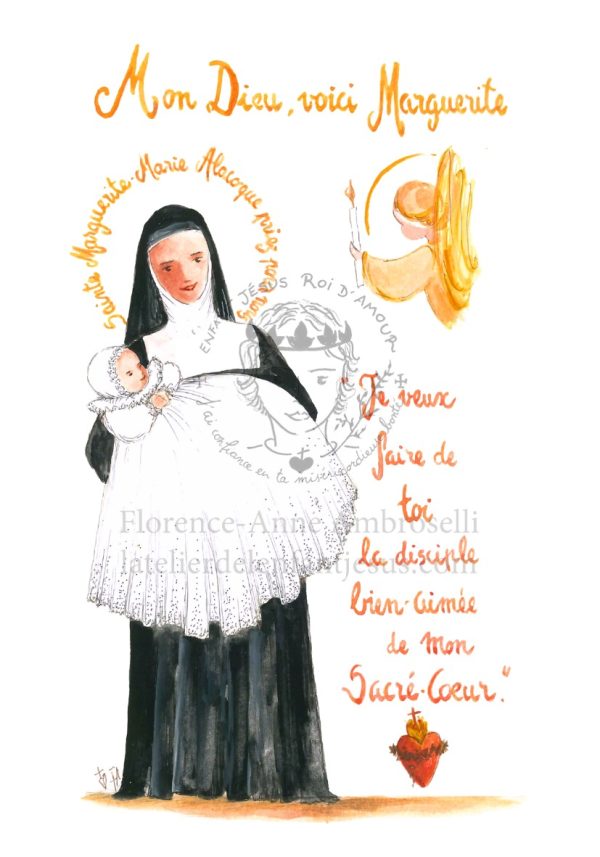 Mon Dieu, voici Marguerite
Sainte Marguerite-Marie Alacoque priez pour nous
ENFANT JÉSUS ROI D'AMOUR
j'ai confiance en ta miséricordieuse bonté
"Je veux
faire de
toi
la disciple
bien-aimée
de mon
Sacré-Coeur."
Florence-Anne Ambroselli
latelierdelenfantjesus.com